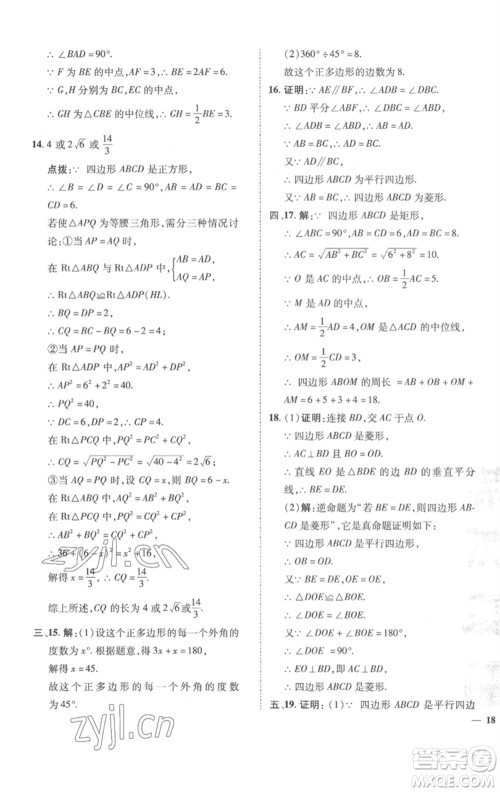 ∴ ∠BAD=90°.
∵ F 为 BE 的中点, AF=3, ∴ BE=2AF=6.
∵ G, H 分别为 BC, EC 的中点,
∴ GH 为△CBE 的中位线, ∴ GH=1/2BE=3.
14. 4 或 2√6 或 14/3
点拨: ∵ 四边形 ABCD 是正方形,
∴ ∠B=∠D=∠C=90°, AB=AD=BC=
CD=6.
若使△APQ 为等腰三角形, 需分三种情况讨
论: ①当 AP=AQ 时,
在 Rt△ABQ 与 Rt△ADP 中, {AB=AD, AQ=AP,
∴ Rt△ABQ≌Rt△ADP(HL).
∴ BQ=DP=2,
∴ CQ=BC-BQ=6-2=4.
②当 AP=PQ 时,
在 Rt△ADP 中, AP²=AD²+DP²,
∴ AP²=6²+2²=40.
∴ PQ²=40.
∵ DC=6, DP=2, ∴ CP=4.
在 Rt△PCQ 中, PQ²=CP²+CQ²,
∴ CQ=√PQ²-CP²=√40-4²=2√6.
③当 AQ=PQ 时, 设 CQ=x, 则 BQ=6-x,
在 Rt△ABQ 中, AQ²=AB²+BQ²,
在 Rt△PCQ 中, PQ²=CP²+CQ²,
∴ AB²+BQ²=CP²+CQ².
∴ 36+(6-x)²=x²+16.
解得 x=14/3, ∴ CQ=14/3.
综上所述, CQ 的长为 4 或 2√6 或 14/3.
三、15. 解: (1)设这个正多边形的每一个外角的
度数为 x°. 根据题意, 得 3x+x=180,
解得 x=45.
故这个正多边形的每一个外角的度数
为 45°.
(2)360°÷45°=8.
故这个正多边形的边数为 8.
16. 证明: ∵ AE∥BF, ∴ ∠ADB=∠DBC.
∵ BD 平分∠ABC, ∴ ∠DBC=∠ABD.
∴ ∠ADB=∠ABD.
∴ AB=AD.
又∵ AD=BC,
∴ AB=BC.
又∵ AD∥BC,
∴ 四边形 ABCD 为平行四边形.
又∵ AB=BC, ∴ 四边形 ABCD 为菱形.
四、17. 解: ∵ 四边形 ABCD 是矩形,
∴ AC=√AB²+BC²=√6²+8²=10.
∵ O 是 AC 的中点, ∴ OB=1/2AC=5.
∵ M 是 AD 的中点,
∴ AM=1/2AD=4, OM 是△ACD 的中位线,
∴ OM=1/2CD=3,
∴ 四边形 ABOM 的周长 =AB+BO+OM+
AM=6+5+3+4=18.
18. (1)证明: 连接 BD, 交 AC 于点 O.
∵ 四边形 ABCD 是菱形,
∴ AC⊥BD, BO=DO.
∴ 直线 EO 是△BDE 的边 BD 的垂直平分
线, ∴ BE=DE.
(2)解: 逆命题为“若 BE=DE, 则四边形 AB-
CD 是菱形”, 它是真命题证明如下:
∵ 四边形 ABCD 是平行四边形,
∴ BO=DO.
又∵ BE=DE, OE=OE,
∴ △DOE≌△BOE,
∴ ∠DOE=∠BOE.
又∵ ∠DOE+∠BOE=180°,
∴ ∠DOE=∠BOE=90°,
∴ EO⊥BD, 即 AC⊥BD.
∴ 四边形 ABCD 是菱形.
五、19. 证明: (1)∵ 四边形 ABCD 是平行四边
— 18
zyjl.cn
zyjl.cn
答案圈
MXQE.COM